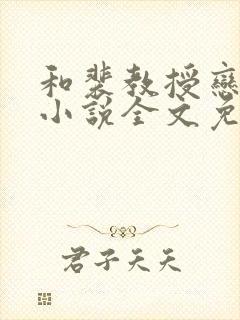 和裴教授戀
小說全文免
君子天天